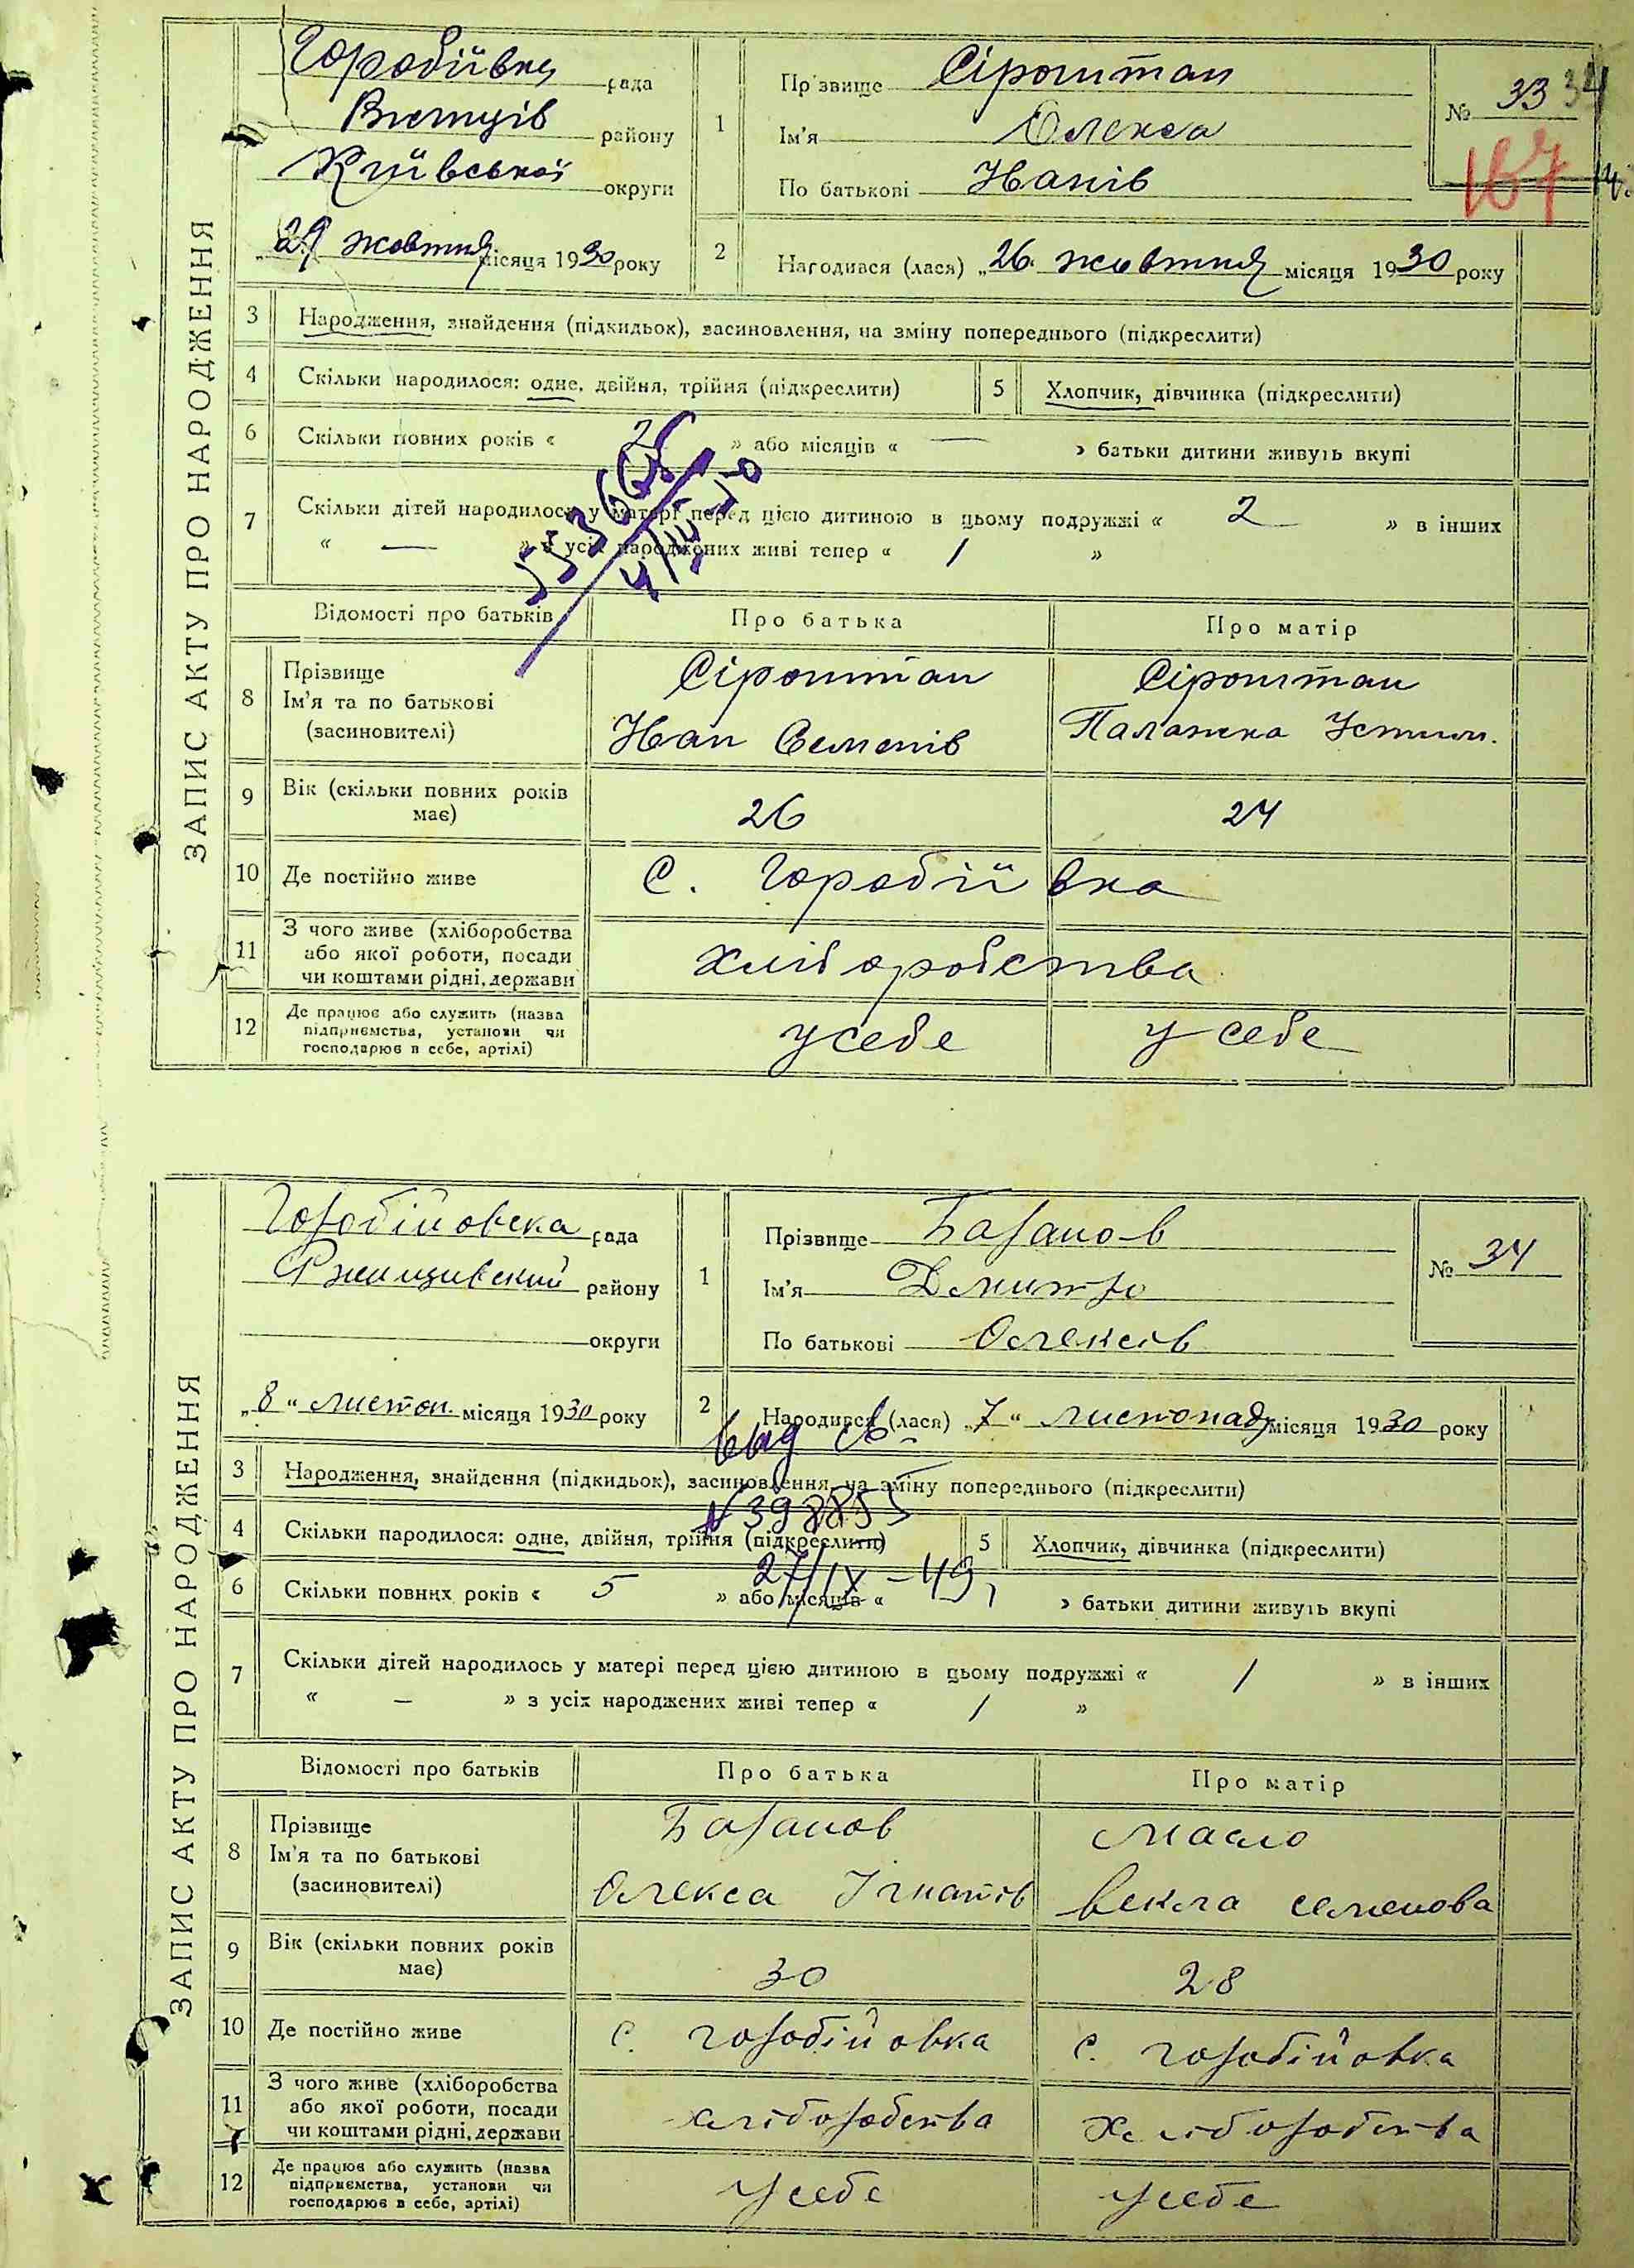 ЗАПИС АКТУ ПРО НАРОДЖЕННЯ
Горобіївка рада
району
Київської округи
„29 жовтня місяця 1930 року
1
Прізвище Сіроштан
Ім'я Олекса
По батькові Іванів
№ 33 34
167
2 Народився (лася) „26 жовтня місяця 1930 року
3 Народження, знайдення (підкидьок), засиновлення, на зміну попереднього (підкреслити)
4 Скільки народилося: одне, двійня, трійня (підкреслити) 5 Хлопчик, дівчинка (підкреслити)
6 Скільки повних років « » або місяців « — » батьки дитини живуть вкупі
7 Скільки дітей народилось у матері перед цією дитиною в цьому подружжі « 2 » в інших
« — » з усіх народжених живі тепер « 1 »
Відомості про батьків Про батька Про матір
8 Прізвище
Ім'я та по батькові
(засиновителі)
Сіроштан
Іван Семенів
Сіроштан
Палажка Устим.
9 Вік (скільки повних років
має)
26 24
10 Де постійно живе с. Горобіївка
11 З чого живе (хліборобства
або якої роботи, посади
чи коштами рідні, держави
хліборобства
12 Де працює або служить (назва
підприємства, установи чи
господарює в себе, артілі)
у себе у себе
ЗАПИС АКТУ ПРО НАРОДЖЕННЯ
Горобійовска рада
Ржищивский району
округи
„8“ листоп. місяця 1930 року
1
Прізвище Баранов
Ім'я Дмитро
По батькові Олексів
№ 34
2 Народився (лася) „7“ листопада місяця 1930 року
выд св.
3 Народження, знайдення (підкидьок), засиновлення, на зміну попереднього (підкреслити)
4 Скільки народилося: одне, двійня, трійня (підкреслити) 5 Хлопчик, дівчинка (підкреслити)
27/IX – 49
6 Скільки повних років « 5 » або місяців « » батьки дитини живуть вкупі
7 Скільки дітей народилось у матері перед цією дитиною в цьому подружжі « 1 » в інших
« — » з усіх народжених живі тепер « 1 »
Відомості про батьків Про батька Про матір
8 Прізвище
Ім'я та по батькові
(засиновителі)
Баранов
Олекса Ігнатів
Масло
Векла семенова
9 Вік (скільки повних років
має)
30 28
10 Де постійно живе с. горобійовка с. горобійовка
11 З чого живе (хліборобства
або якої роботи, посади
чи коштами рідні, держави
хліборобства хліборобства
12 Де працює або служить (назва
підприємства, установи чи
господарює в себе, артілі)
у себе у себе